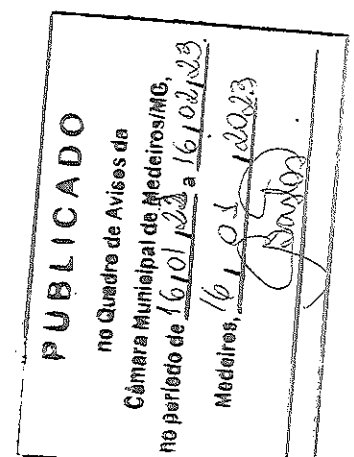 PUBLICADO
no Quadro de Avisos da
Câmara Municipal de Medeiros/MG,
no período de 16/01/23 a 16/02/23.
Medeiros, 16, 01, 2023